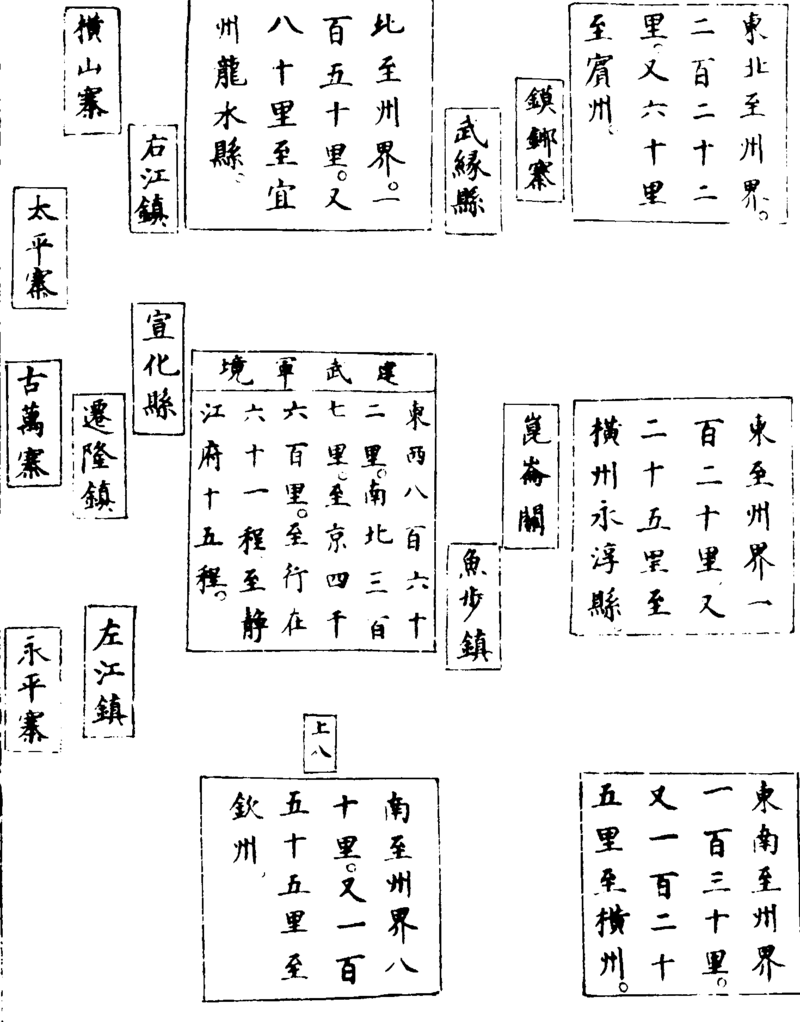 東北至州界。
二百二十二
里。又六十里
至賓州。
鎖鋣寨
武緣縣
北至州界。一
百五十里。又
八十里至宜
州龍水縣、
右江鎮
橫山寨
太平寨
東至州界一
百二十里、又
二十五里至
橫州永淳縣
崑崙關
魚步鎮
建武軍境
東西八百六十
二里。南北三百
七里。至京四千
六百里。至行在
六十一程至靜
江府十五程。
宣化縣
遷隆鎮
古萬寨
左江鎮
永平寨
東南至州界
一百三十里。
又一百二十
五里至橫州。
上八
南至州界八
十里。又一百
五十五里至
欽州、